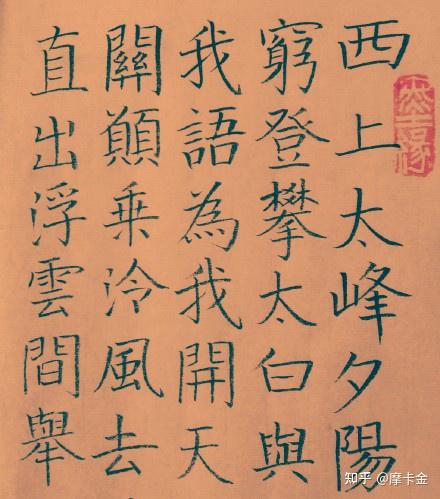 西上太峰夕陽
窮登攀太白與
我語為我開天
關顚乘泠風去
直出浮雲間舉
知乎 @摩卡金